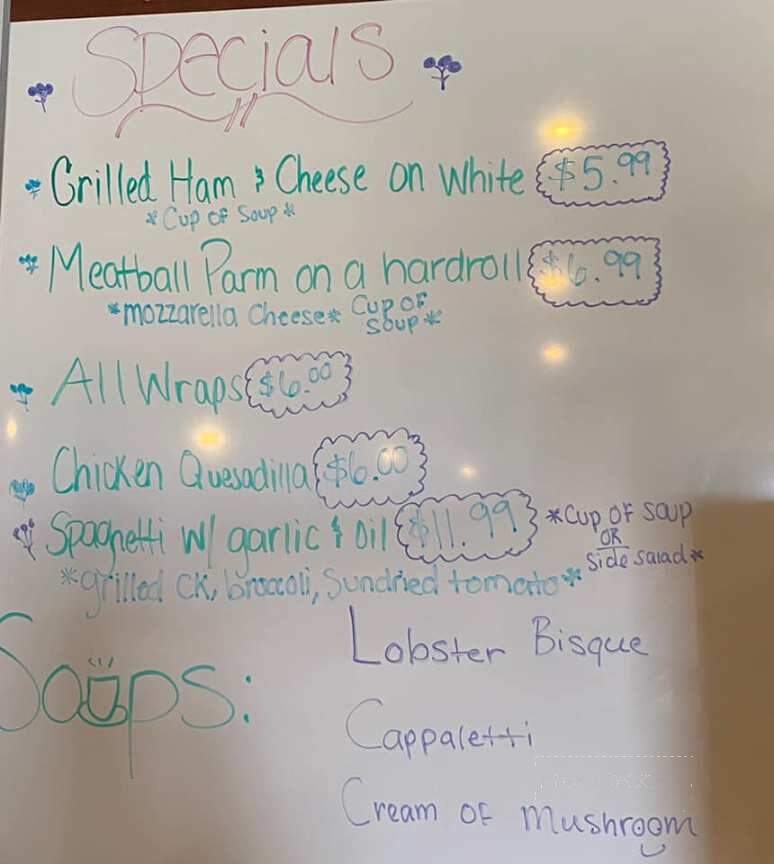 Specials
Grilled Ham & Cheese on White $5.99
*Cup of Soup*
Meatball Parm on a hardroll $6.99
*mozzarella cheese* Cup of
Soup*
All Wraps $6.00
Chicken Quesadilla $6.00
Spaghetti w/ garlic & oil $11.99 *Cup of soup
OR
Side salad*
*grilled CK, broccoli, Sundried tomato*
Soups:
Lobster Bisque
Cappaletti
Cream of mushroom